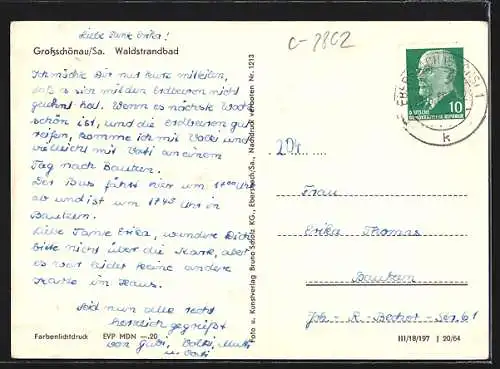 Liebe Tante Erika!
Großschönau/Sa. Waldstrandbad
Ich möchte Dir nur kurz mitteilen,
daß es mit den Erdbeeren nicht
geklappt hat. Wenn es nächste Woche
schön ist, und die Erdbeeren gut
reifen, komme ich mit Volki und
vielleicht mit Vati an einem
Tag nach Bautzen.
Der Bus fährt hier um 17⁰⁰ Uhr
ab und ist um 17⁴⁵ Uhr in
Bautzen.
Liebe Tante Erika, wundere Dich
bitte nicht über die Karte, aber
es war leider keine andere
Karte im Haus.
Seid nun alle recht
herzlich gegrüßt
von Gabi, Volki, Mutti
u. Vati
Farbenlichtdruck EVP MDN —.20
Foto u. Kunstverlag Bruno Scholz KG., Ebersbach/Sa., Nachdruck verboten Nr. 1213
C-7862
10
DEUTSCHE
DEMOKRATISCHE REPUBLIK
k
Frau
Erika Thomas
Bautzen
Joh.-R.-Becher-Str. 61
III/18/197 J 20/64